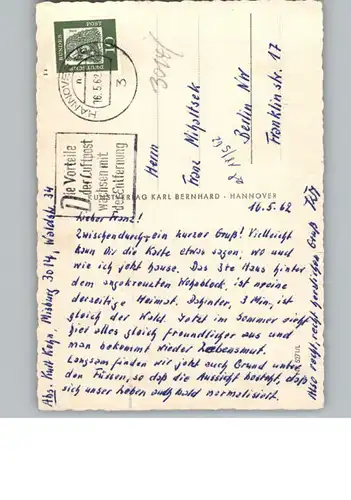 HANNOVER
16.5.62
3
DEUTSCHE
BUNDESPOST
Die Vorteile
der Luftpost
wachsen mit
der Entfernung
3014/
Herrn
Franz
Berlin NW
Franklinstr. 17
KUNSTVERLAG KARL BERNHARD - HANNOVER
16.5.62
Lieber Franz!
Zwischendurch ein kurzer Gruß! Vielleicht
kann Dir die Karte etwas sagen, wo und
wie ich jetzt hause. Das 3te Haus hinter
dem angekreuzten Wohnblock, ist meine
derzeitige Heimat. Dahinter, 3 Min, ist
gleich der Wald. Jetzt im Sommer sieht
hier alles gleich freundlicher aus und
man bekommt wieder Lebensmut.
Langsam finden wir jetzt auch Grund unter
den Füssen, so daß die Aussicht besteht, daß
sich unser Leben auch bald normalisiert.
Also recht, recht herzlichen Gruß
Abs. Kurt Kohn, Misburg 3014, Waldstr. 34